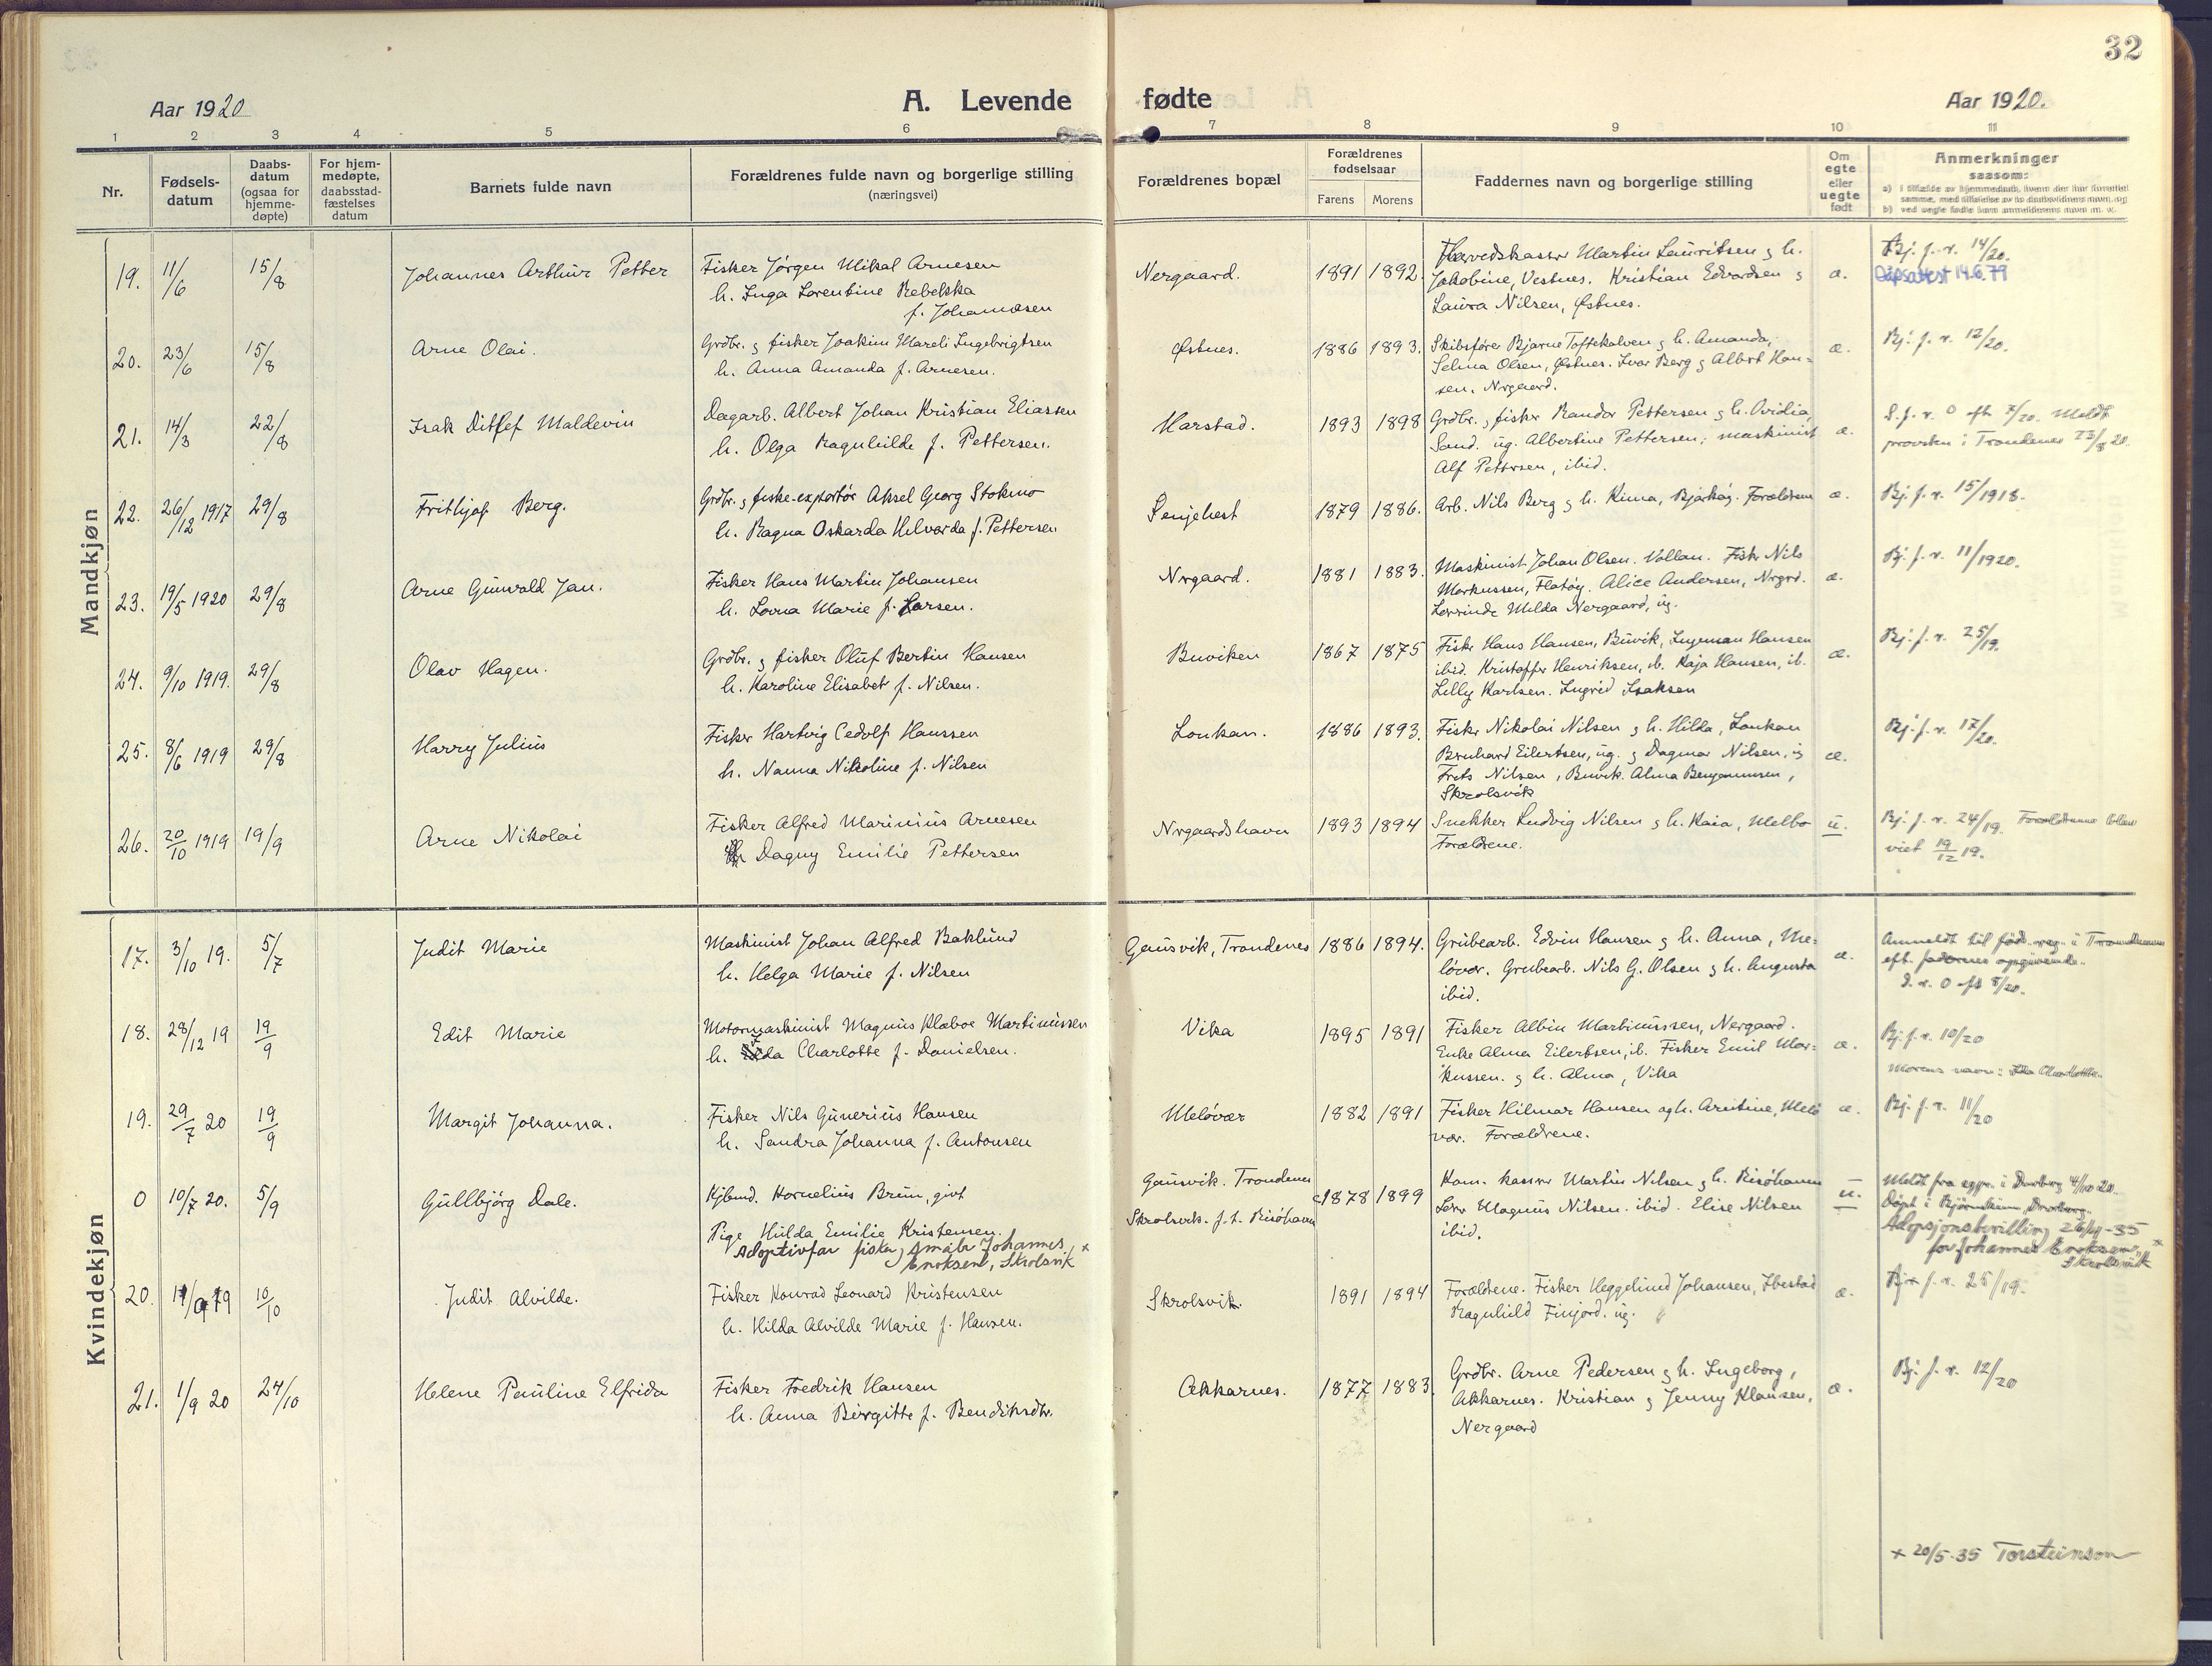 32
Aar 1920
A. Levende fødte
Aar 1920.
1 2 3 4 5 6 7 8 9 10 11
Nr.
Fødsels-
datum
Daabs-
datum
(ogsaa for
hjemme-
døpte)
For hjem-
medøpte,
daabsstad-
fæstelses
datum
Barnets fulde navn
Forældrenes fulde navn og borgerlige stilling
(næringsvei)
Forældrenes bopæl
Forældrenes
fødselsaar
Farens Morens
Faddernes navn og borgerlige stilling
Om
egte
eller
uegte
født
Anmerkninger
saasom:
a) i tilfælde av hjemmedaab, hvem der har forrettet
samme, med tilføielse av to daabsvidners navn, og
b) ved uegte fødte barn anmelderens navn m. v.
Mandkjøn
19. 11/6 15/8 Johannes Arthur Petter
Fisker Jørgen Mikal Arnesen
h. Inga Lorentine Rebekka
f. Johannesen
Nergaard. 1891 1892.
Martin Lauritsen & h.
Jakobine, Vestnes. Kristian Edvardsen &
Laura Nilsen, Østnes.
æ.
Bj. f. r. 14/20.
Dåpsattest 14.6.79
20. 23/6 15/8 Arne Olai.
Grdbr. & fisker Joakim Mareli Ingebrigtsen
h. Anna Amanda f. Arnesen.
Østnes. 1886 1893.
Skibsfører Bjarne Toftekalven & h. Amanda,
Selma Olsen, Østnes. Ivar Berg & Albert Han=
sen. Nrgaard.
æ.
Bj. f. r. 12/20.
21. 14/3 22/8 Isak Ditlef Maldevin
Dagarb. Albert Johan Kristian Eliassen
h. Olga Ragnhilde f. Pettersen.
Harstad. 1893 1898
Grdbr. & fisker Randor Pettersen & h. Ovidia,
Sand. ug. Albertine Pettersen; maskinist
Alf Pettersen, ibid.
æ.
S. f. r. 0 eft 7/20. Meldt
provsten i Trondenes 23/8 20.
22. 26/12 1917 29/8 Frithjof Berg.
Grdbr. & fiske-exportør Aksel Georg Stokmo
h. Ragna Oskarda Helvarda f. Pettersen
Senjehest 1879 1886.
Arb. Nils Berg & h. Kinna, Bjarkøy. Forældrene
æ.
Bj. f. r. 15/1918.
23. 19/5 1920 29/8 Arne Gunvald Jan.
Fisker Hans Martin Johansen
h. Lovna Marie f. Larsen.
Nrgaard. 1881 1883.
Maskinist Johan Olsen. Vollan. Fiskr Nils
Markussen, Flatøy. Alice Andersen, Nrgrd.
Lærerinde Milda Nergaard, ug.
æ.
Bj. f. r. 11/1920.
24. 9/10 1919. 29/8 Olav Hagen.
Grdbr. & fisker Oluf Bertin Hansen
h. Karoline Elisabet f. Nilsen.
Buviken 1867 1875
Fiskr Hans Hansen, Buvik, Ingeman Hansen
ibid. Kristoffer Henriksen, ib. Kaja Hansen, ib.
Lilly Karlsen. Ingrid Isaksen
æ.
Bj. f. r. 25/19.
25. 8/6 1919 29/8 Harry Julius
Fisker Hartvig Cedolf Hanssen
h. Nanna Nikoline f. Nilsen
Lonkan. 1886 1893.
Fiskr Nikolai Nilsen & h. Hilda, Lonkan
Bernhard Eilertsen, ug. & Dagmar Nilsen, ug
Frits Nilsen, Buvik. Alma Benjaminsen,
Skrolsvik
æ.
Bj. f. r. 17/20.
26. 20/10 1919 19/9 Arne Nikolai
Fisker Alfred Marinius Arnesen
Dagny Emilie Pettersen
Nrgaardshavn 1893 1894
Snekker Ludvig Nilsen & h. Kaia, Melbo
Forældrene.
u.
Bj. f. r. 24/19. Forældrene blev
viet 19/12 19.
Kvindekjøn
17. 3/10 19. 5/7 Judit Marie
Maskinist Johan Alfred Baklund
h. Helga Marie f. Nilsen
Gausvik, Trondenes 1886 1894.
Grubearb. Edvin Hansen & h. Anna, Me=
løvær. Grubearb. Nils G. Olsen & h. Augusta
ibid.
æ.
Anmeldt til føds. reg. i Trondenes
eft. faderens opgivende.
S. r. 0 eft 8/20.
18. 28/12 19 19/9 Edit Marie
Motormaskinist Magnus Klæboe Martinussen
h. Charlotte f. Danielsen.
Vika 1895 1891
Fisker Albin Martinussen, Nergaard.
Enke Alma Eilertsen, ib. Fisker Emil Mar=
kussen. & h. Alma, Vika
æ.
Bj. f. r. 10/20
Morens navn: Ida Charlotte.
19. 29/7 20 19/9 Margit Johanna.
Fisker Nils Gunerius Hansen
h. Sandra Johanna f. Antonsen
Meløvær 1882 1891
Fisker Hilmar Hansen og h. Arntine, Melø
vær. Forældrene.
æ.
Bj. f. r. 11/20
0 10/7 20. 5/9 Gullbjörg Dale.
Kjbmd. Kornelius Brun, givt
Pige Hulda Emilie Kristensen.
Adoptivfar fisker, småbr Johannes
Enoksen, Skrolsvik x
Gausvik. Trondenes
Skrolsvik. f. t. Risöhavn
1878 1899
Kom. kasserer Martin Nilsen & h. Risöhavn
Lærer Magnus Nilsen. ibid. Elise Nilsen
ibid.
u.
Meldt fra sgpr. i Dverberg 4/10 20.
Døpt i Bjørnskinn, Dverberg.
Adopsjonsbevilling 26/4-35
for Johannes Enoksen, x
Skrolsvik
20. 19 10/10 Judit Alvilde.
Fisker Konrad Leonard Kristensen
h. Hilda Alvilde Marie f. Hansen.
Skrolsvik. 1891 1894
Forældrene. Fisker Heggelund Johansen, Ibestad
Ragnhild Finjord. ug.
æ.
Bj. f. r. 25/19.
21. 1/9 20 24/10 Helene Pauline Elfrida
Fisker Fredrik Hansen
h. Anna Birgitte f. Bendiksdtr.
Akkarnes. 1877 1883.
Grdbr. Arne Pedersen & h. Ingeborg,
Akkarnes. Kristian & Jenny Klausen,
Nergaard
æ.
Bj. f. r. 12/20
x 20/5-35 Torsteinson